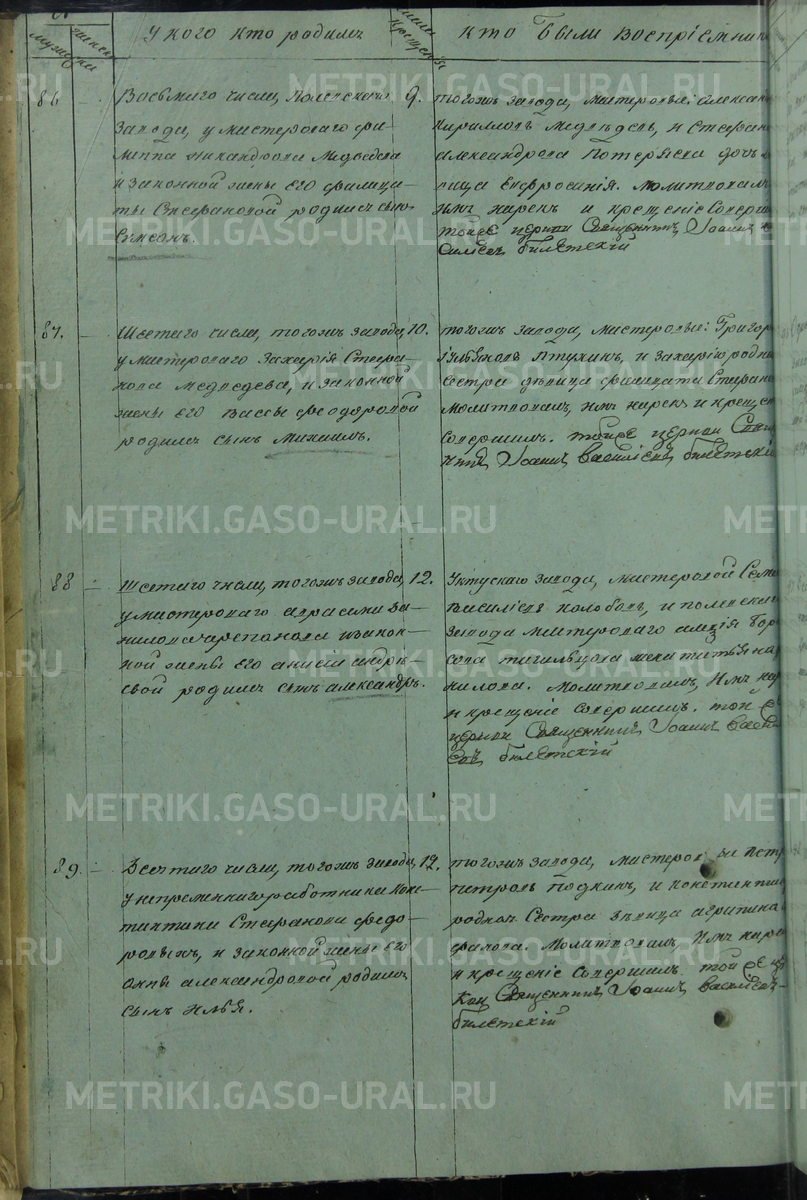 У кого кто родился
Кто были воспріемник
Мужеска
числа
крещенія
86
Восьмаго числа, Полевскаго
завода, у мастероваго Фи-
липпа Никандрова Медведева
и законной жены его Фелица-
ты Стефановой родился сынъ
Симеонъ.
9.
тогожъ завода, мастеровые: Алексан
Кирилловъ Медведевъ, и Стефан
Александрова Потеряева дочь д
вица Евфросинія. Молитвовалъ
имя нарекъ и крещеніе совер
тойже церкви Священникъ Іоаннъ В
асилісвъ Билетскій
87.
Шестаго числа, тогожъ завода,
у мастероваго Захарія Стефа-
нова Медведева, и законной
жены его Вассы Феодоровой
родился сынъ Михаилъ.
10.
тогожъ завода, мастеровые: Григор
Птухинъ, и Захарію родна
сестра девица Фелицата Стефано
Молитвовалъ, имя нарекъ и креще
совершилъ. тойже церкви Свящ
никъ Іоаннъ Васильевъ Билетскій
88
Шестаго числа, тогожъ завода,
у мастероваго Герасима Да-
нилова Черепанова и закон-
ной жены его Анисіи Андре-
евой родился сынъ Александръ.
12.
Уктускаго завода, мастеровой Семе
Васильевъ Колобовъ, и Полевска
завода мастероваго
жена Татьяна
нилова. Молитвовалъ, имя на
и крещеніе совершилъ. той же
церкви Священникъ Іоаннъ Васи
евъ Билетскій
89.
Десятаго числа, тогожъ завода,
у непременнаго работника Конс-
тантина Стефанова Федо-
ровыхъ, и законной жены его
Анны Александровой родился
сынъ Илья.
12.
тогожъ завода, мастеров Петр
Петровъ Подкинъ, и Константин
родная сестра девица Агрипина
фанова. Молитвовалъ, имя наре
и крещеніе совершилъ. той же це
кви Священникъ Іоаннъ Васильев-
Билетскій
METRIKI.GASO-URAL.RU